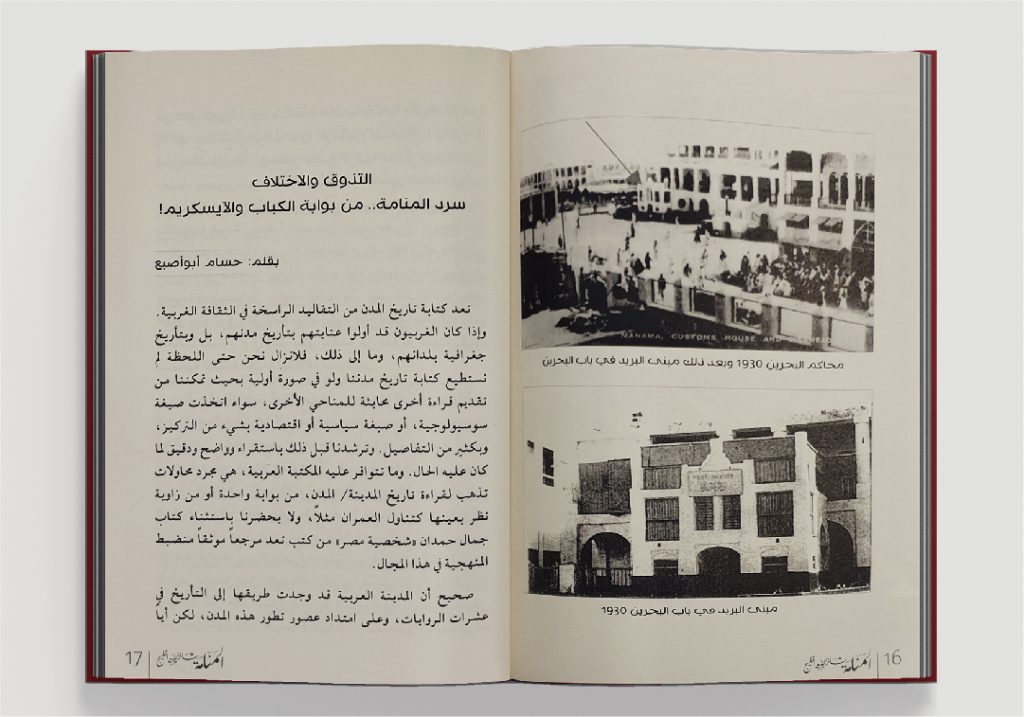 MANAMA, CUSTOMS HOUSE AND
محاكم البحرين 1930 وبعد ذلك مبنى البريد في باب البحرين
POST OFFICE
مبنى البريد في باب البحرين 1930
المنامة
16
التذوق والاختلاف
سرد المنامة.. من بوابة الكباب والآيسكريم!
بقلم: حسام أبوأصبع
تعد كتابة تاريخ المدن من التقاليد الراسخة في الثقافة الغربية.
وإذا كان الغربيون قد أولوا عنايتهم بتأريخ مدنهم، بل وبتأريخ
جغرافية بلدانهم، وما إلى ذلك، فلانزال نحن حتى اللحظة لم
نستطيع كتابة تاريخ مدننا ولو في صورة أولية بحيث تمكننا من
تقديم قراءة أخرى محايثة للمناحي الأخرى، سواء اتخذت صيغة
سوسيولوجية، أو صبغة سياسية أو اقتصادية بشيء من التركيز،
وبكثير من التفاصيل. وترشدنا قبل ذلك باستقراء وواضح ودقيق لما
كان عليه الحال. وما تتوافر عليه المكتبة العربية، هي مجرد محاولات
تذهب لقراءة تاريخ المدينة/ المدن، من بوابة واحدة أو من زاوية
نظر بعينها كتناول العمران مثلاً، ولا يحضرنا باستثناء كتاب
جمال حمدان «شخصية مصر» من كتب تعد مرجعاً موثقاً منضبط
المنهجية في هذا المجال.
صحيح أن المدينة العربية قد وجدت طريقها إلى التأريخ في
عشرات الروايات، وعلى امتداد عصور تطور هذه المدن، لكن أياً
المنامة
17